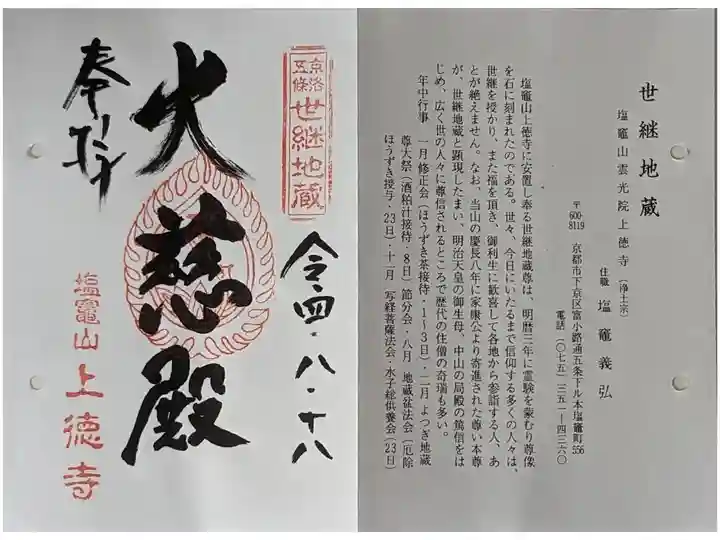 京洛
五條
世継地蔵
奉拝
大慈殿
令四・八・十八
塩竈山上徳寺
世継地蔵
塩竈山雲光院上徳寺(浄土宗)
住職 塩竈義弘
〒600-8119 京都市下京区富小路通五条下ル本塩竈町556
電話(〇七五)三五一―四三六〇
塩竈山上徳寺に安置し奉る世継地蔵尊は、明暦三年に霊験を蒙むり尊像
を石に刻まれたのである。世々、今日にいたるまで信仰する多くの人々は、
世継を授かり、また福を頂き、御利生に歓喜して各地から参詣する人、あ
とが絶えません。なお、当山の慶長八年に家康公より寄進された尊い本尊
が、世継地蔵と顕現したまい、明治天皇の御生母、中山の局殿の篤信をは
じめ、広く世の人々に尊信されるところで歴代の住僧の奇瑞も多い。
年中行事 一月修正会(ほうずき茶接待・1～3日)・二月 よつぎ地蔵
尊大祭(酒粕汁接待・8日)節分会・八月 地蔵祐法会(厄除
ほうずき授与・23日)・十一月 写経菩薩法会・水子総供養会(23日)